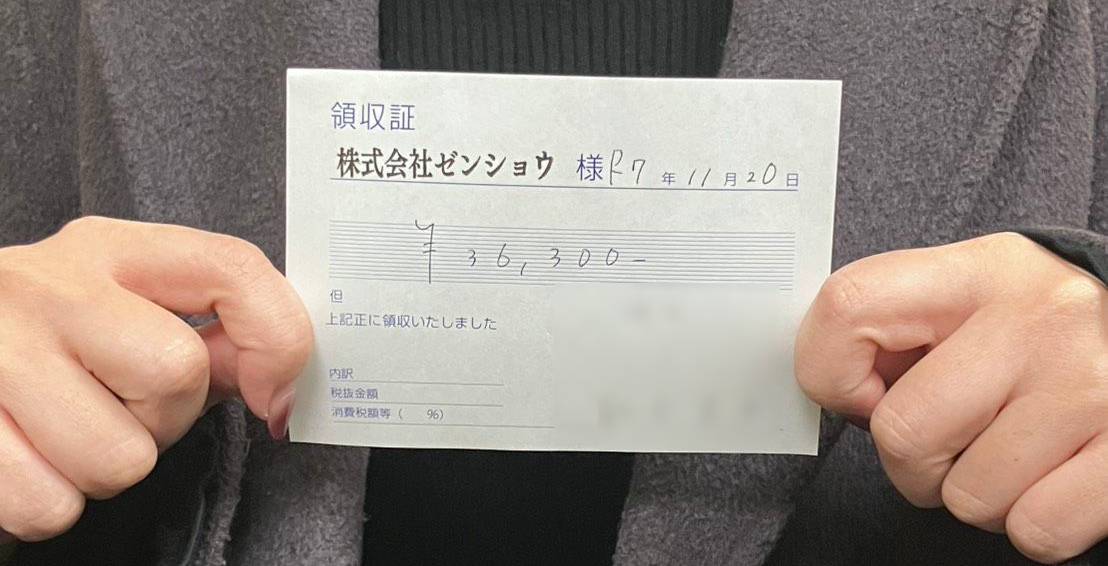 領収証
株式会社ゼンショウ 様 R7年11月20日
¥36,300-
但
上記正に領収いたしました
内訳
税抜金額
消費税額等( %)